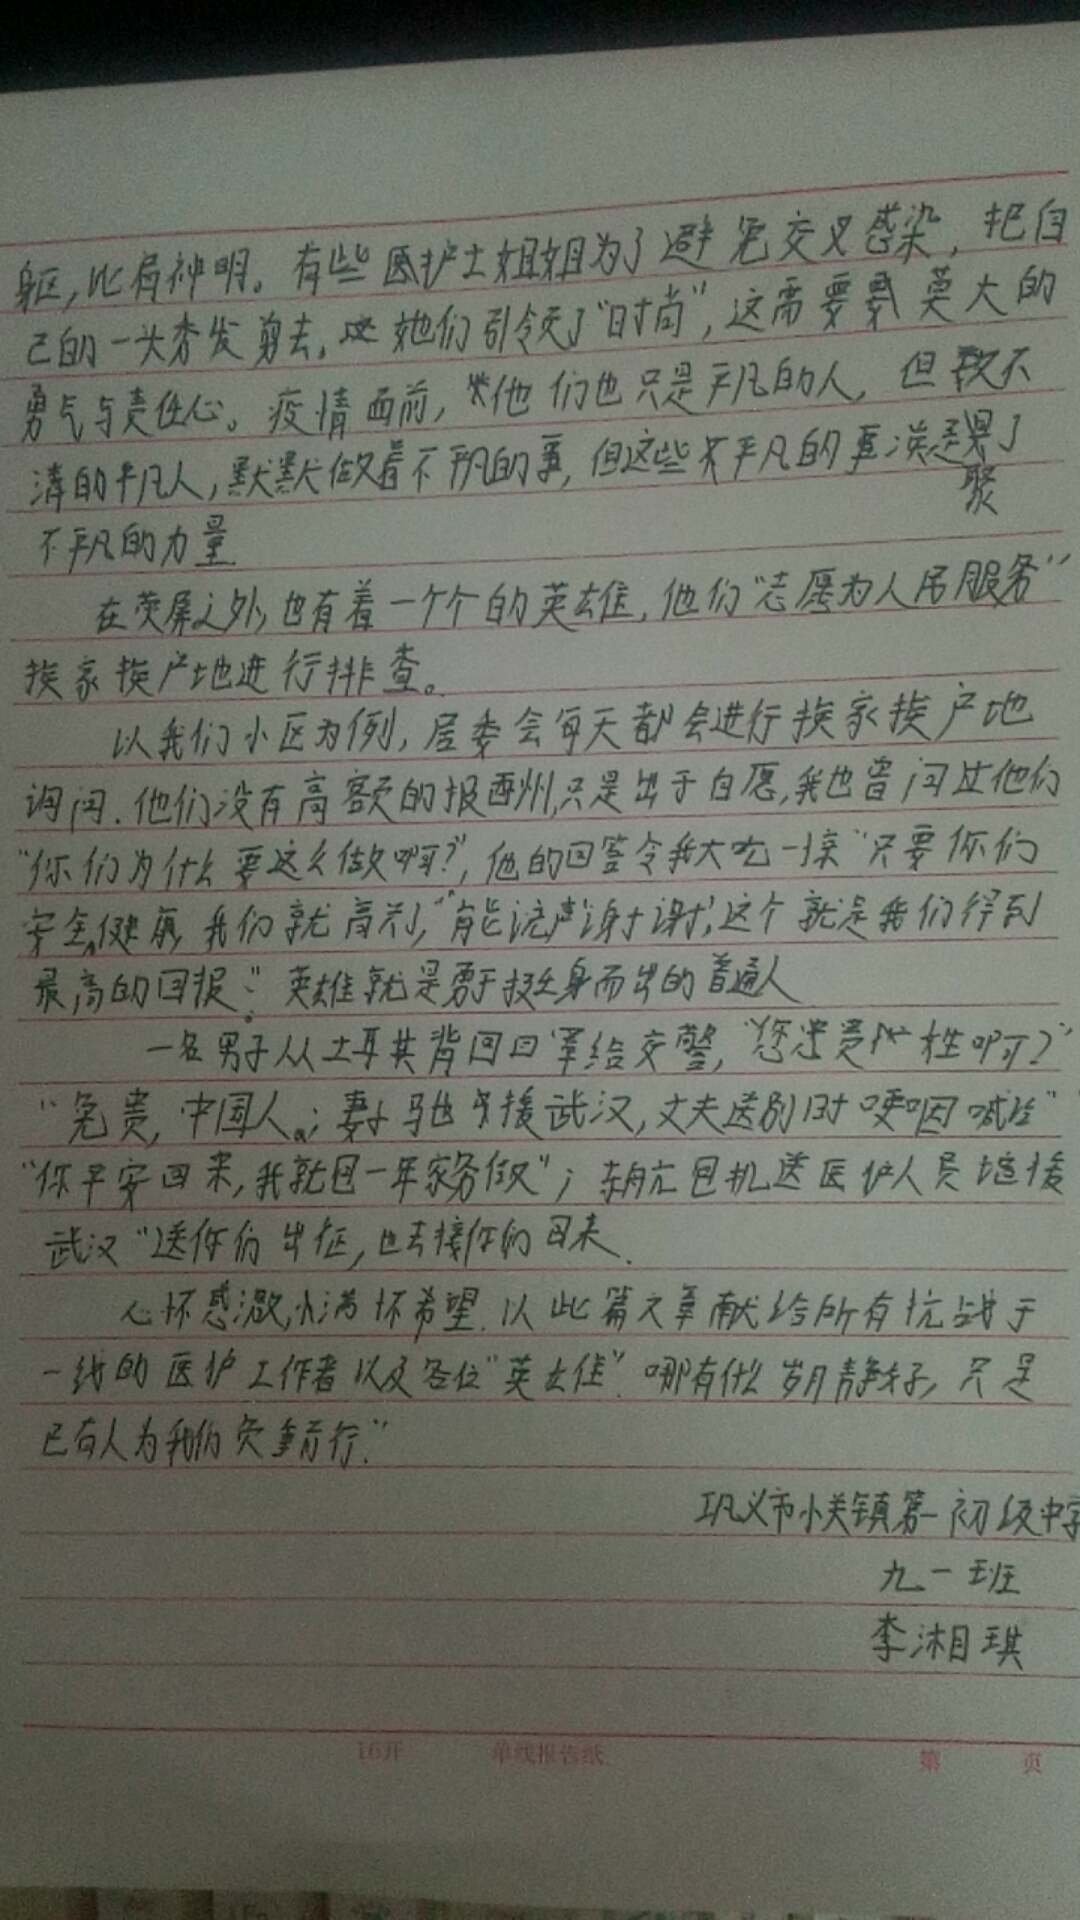 躯，比肩神明。有些医护士姐姐为了避免交叉感染，把自
己的一头秀发剪去，她们引领了"时尚"，这需要莫大的
勇气与责任心。疫情面前，他们也只是平凡的人，但数不
清的平凡人，默默做着不平凡的事，但这些不平凡的事
聚
不平凡的力量
在荧屏之外，也有着一个个的英雄，他们"志愿为人民服务"
挨家挨户地进行排查。
以我们小区为例，居委会每天都会进行挨家挨户地
询问．他们没有高额的报酬，只是出于自愿，我也曾问过他们
"你们为什么要这么做啊？"，他的回答令我大吃一惊"只要你们
安全，健康，我们就高兴，"能说声谢谢，这个就是我们得到
最高的回报。"英雄就是勇于挺身而出的普通人
一名男子从土耳其背回口罩给交警，"您贵姓啊？"
"免贵，中国人。；妻子驰援武汉，丈夫送别时哽咽喊
"你平安回来，我就包一年家务做"；东航包机送医护人员增援
武汉"送你们出征，也去接你们回来．
心怀感激，满怀希望．以此篇文章献给所有抗战于
一线的医护工作者以及各位"英雄"．哪有什么岁月静好，只是
已有人为我们负重前行．"
巩义市小关镇第一初级中学
九一班
李湘琪
16开 单线报告纸 第 页